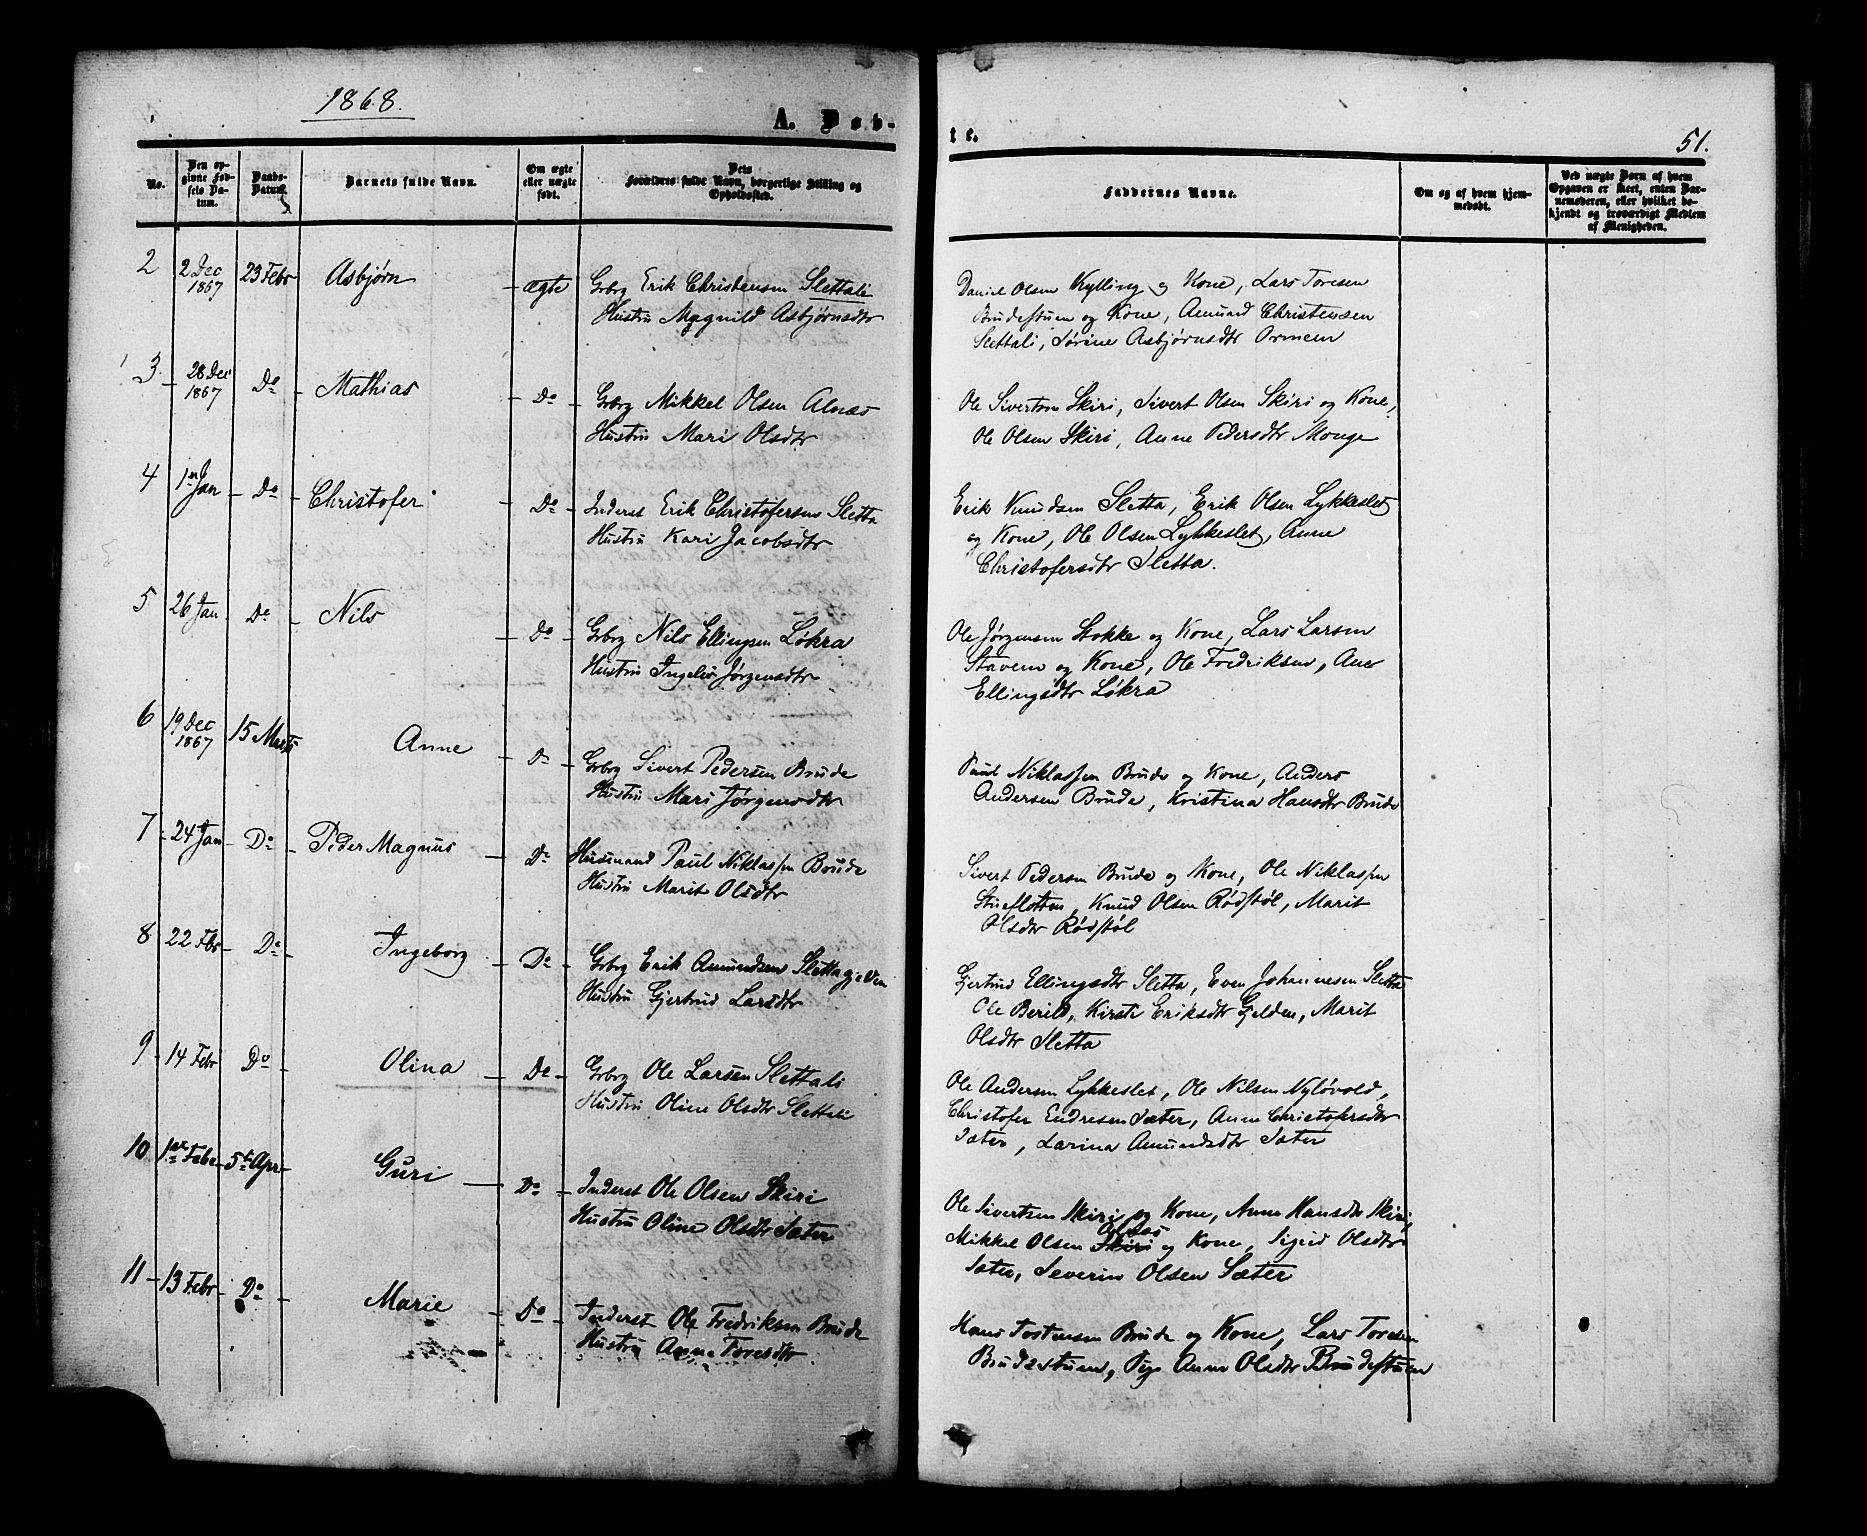 1868.
A. Døb-
No.
Den opgivne Fødsels Datum.
Daabs-Datum.
Barnets fulde Navn.
Om ægte eller uægte født.
Dets Forældres fulde Navn, borgerlige Stilling og Opholdssted.
2 2 Dec 1867 23 Febr Asbjørn ægte Grbrg Erik Christensen Slettali
Hustru Magnild Asbjørnsdtr
3 28 Dec 1867 Do Mathias Do Grbrg Mikkel Olsen Alnæs
Hustru Mari Olsdtr
4 1ste Jan Do Christofer Do Inderst Erik Christofersen Sletta
Hustru Kari Jacobsdtr
5 26 Jan Do Nils Do Grbrg Nils Ellingsen Løkra
Hustru Ingeliv Jørgensdtr
6 19 Dec 1867 15 Marts Anne Do Grbrg Sivert Pedersen Brude
Hustru Mari Jørgensdtr
7 24 Jan Do Peder Magnus Do Husmand Paul Niklassen Brude
Hustru Marit Olsdtr
8 22 Fbr Do Ingeborg Do Grbrg Erik Amundsen Slettagjelden
Hustru Gjertrud Larsdtr
9 14 Febr Do Olina Do Grbrg Ole Larsen Slettali
Hustru Oline Olsdtr Slettali
10 1ste Febr 5te Apr Guri Do Inderst Ole Olsen Skiri
Hustru Oline Olsdtr Sæter
11 13 Febr Do Marie Do Inderst Ole Fredriksen Brude
Hustru Anne Toresdtr
te.
51.
Faddernes Navne.
Om og af hvem hjemmedøbt.
Ved uægte Børn af hvem Opgaven er skeet, enten Barnemoderen, eller hvilket bekjendt og troværdigt Medlem af Menigheden.
Daniel Olsen Kylling og Kone, Lars Toresen
Brudestuen og Kone, Amund Christensen
Slettali, Sørine Asbjørnsdtr Ormem
Ole Sivertsen Skiri, Sivert Olsen Skiri og Kone,
Ole Olsen Skiri, Anne Pedersdtr Monge
Erik Knudsen Sletta, Erik Olsen Lykkeslet
og Kone, Ole Olsen Lykkeslet, Anne
Christofersdtr Sletta.
Ole Jørgensen Stokke og Kone, Lars Larsen
Stavem og Kone, Ole Fredriksen, Ane
Ellingsdtr Løkra
Paul Niklassen Brude og Kone, Anders
Andersen Brude, Kristina Hansdtr Brude
Sivert Pedersen Brude og Kone, Ole Niklassen
Stueflotten, Knud Olsen Rødstøl, Marit
Olsdtr Rødstøl
Gjertrud Ellingsdtr Sletta, Even Johannesen Sletta
Ole Berild, Kirsti Eriksdtr Gjelden, Marit
Olsdtr Sletta
Ole Andersen Lykkeslet, Ole Nilsen Nyløvold,
Christofer Endresen Sæter, Anne Christofersdtr
Sæter, Larina Amundsdtr Sæter
Ole Sivertsen Skiri og Kone, Anne Hansdtr Skiri,
Alnæs
Mikkel Olsen Skiri og Kone, Sigrid Olsdtr
Sæter, Severin Olsen Sæter
Hans Tostensen Brude og Kone, Lars Toresen
Brudestuen, Pige Anne Olsdtr Brudestuen